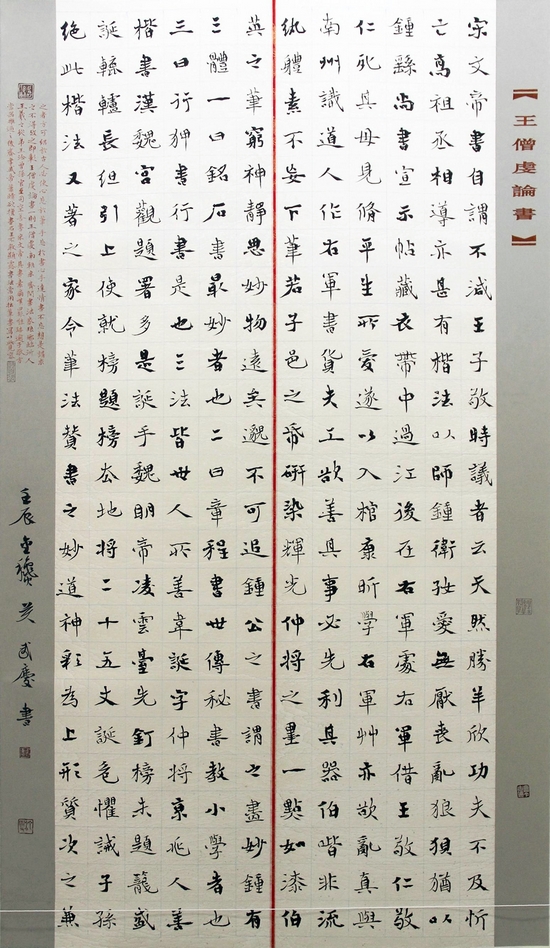 【王僧虔論書】
宋文帝書自謂不減王子敬時議者云天然勝羊欣功夫不及忻
亡高祖丞相導亦甚有楷法以師鍾衛好愛無厭喪亂狼狽猶以
鍾繇尚書宣示帖藏衣帶中過江後在右軍處右軍借王敬仁敬
仁死其母見脩平生所愛遂以入棺康昕學右軍艸亦欲亂真與
南州識道人作右軍書貨夫工欲善其事必先利其器伯喈非流
紈體素不妄下筆若子邑之紙研染輝光仲將之墨一點如漆伯
英之筆窮神靜思妙物遠矣邈不可追鍾公之書謂之盡妙鍾有
三體一曰銘石書最妙者也二曰章程書世傳秘書教小學者也
三曰行狎書行書是也三法皆世人所善韋誕字仲將京兆人善
楷書漢魏宮觀題署多是誕手魏明帝凌雲臺先釘榜未題籠盛
誕轆轤長絙引上使就榜題榜去地將二十五丈誕危懼誡子孫
絕此楷法又著之家令筆法贊書之妙道神彩為上形質次之兼
壬辰金龝吳武慶書